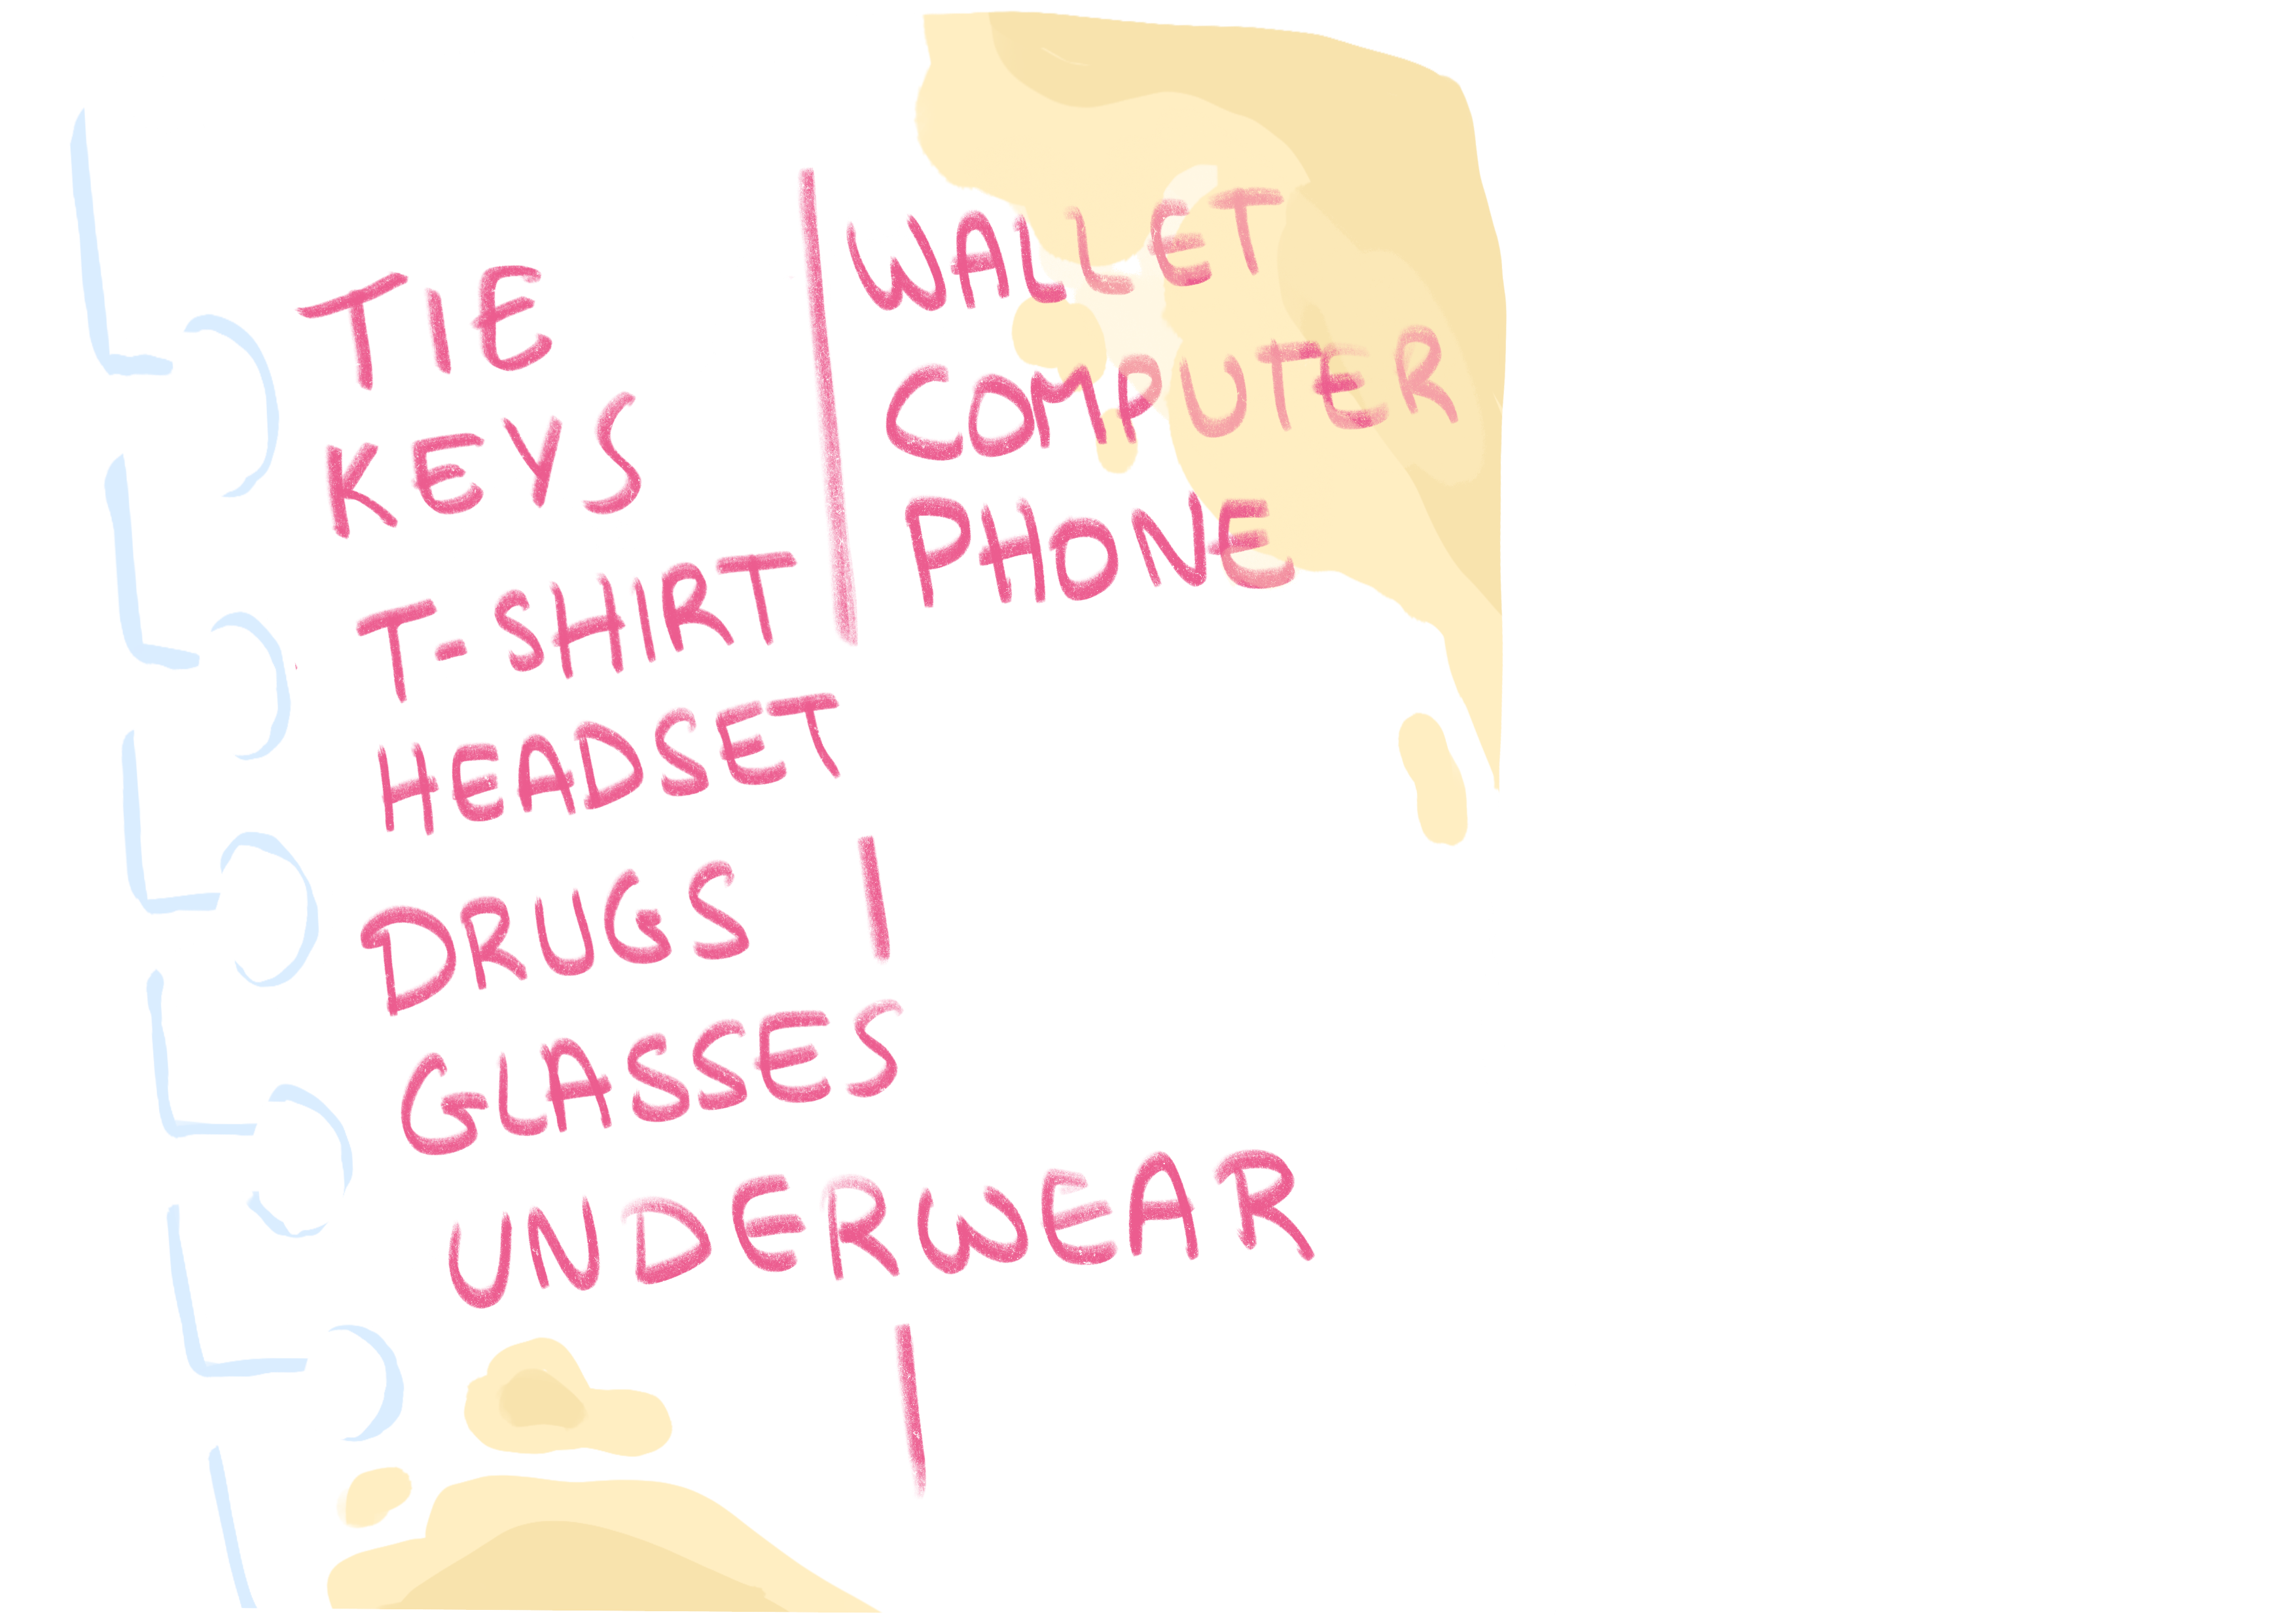 TIE
KEYS
T-SHIRT
HEADSET
DRUGS
GLASSES
UNDERWEAR
WALLET
COMPUTER
PHONE